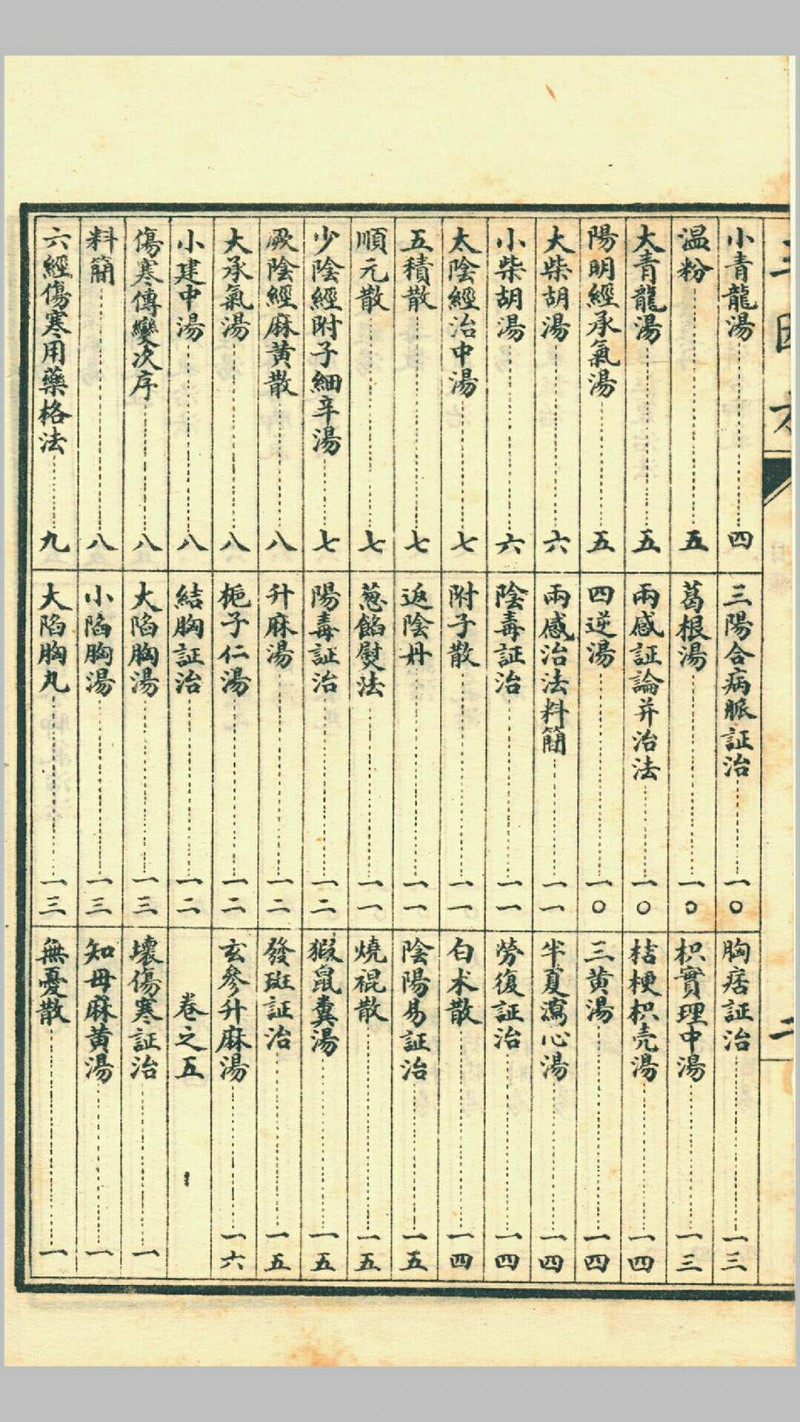 小青龍湯 四
温粉 五
大青龍湯 五
陽明經承氣湯 五
大柴胡湯 六
小柴胡湯 六
太陰經治中湯 七
五積散 七
順元散 七
少陰經附子細辛湯 七
厥陰經麻黄散 八
大承氣湯 八
小建中湯 八
傷寒傳變次序 八
料簡 八
六經傷寒用藥格法 九
三陽合病脈証治 一〇
葛根湯 一〇
兩感証論并治法 一〇
四逆湯 一〇
兩感治法料簡 一一
陰毒証治 一一
附子散 一一
返陰丹 一一
葱餡熨法 一一
陽毒証治 一二
升麻湯 一二
梔子仁湯 一二
結胸証治 一二
大陷胸湯 一三
小陷胸湯 一三
大陷胸丸 一三
胸痞証治 一三
枳實理中湯 一三
桔梗枳壳湯 一四
三黄湯 一四
半夏瀉心湯 一四
勞復証治 一四
白朮散 一四
陰陽易証治 一五
燒裩散 一五
猳鼠糞湯 一五
發斑証治 一五
玄參升麻湯 一六
卷之五
壞傷寒証治 一
知母麻黄湯 一
無憂散 一